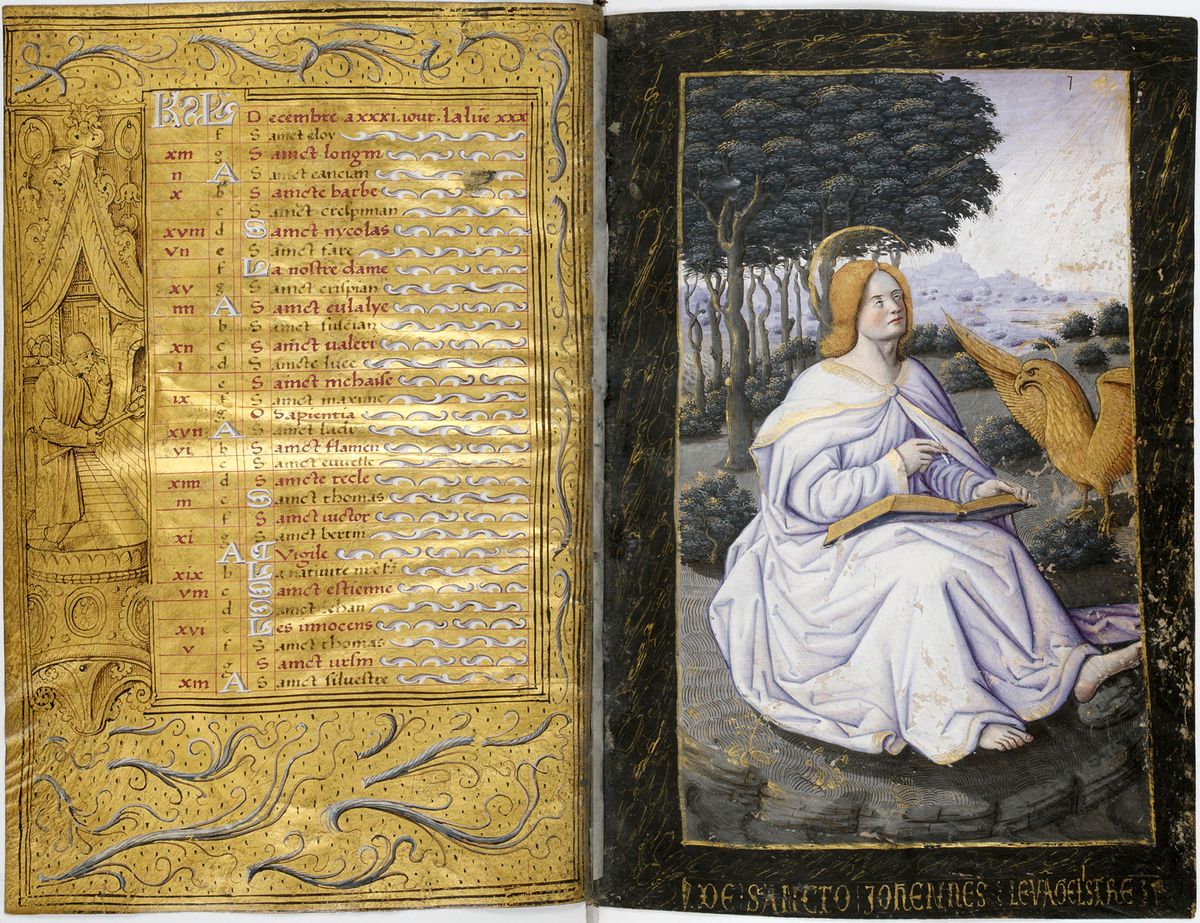 KL Decembre a xxxi. iour. la lūe xxx
f Sainct eloy
xiii g Sainct longin
ii A Sainct cancian
x b Saincte barbe
c Sainct crespinian
xviii d Sainct nycolas
vii e Sainct fare
f La nostre dame
xv g Sainct crispian
iiii A Sainct eulalye
b Sainct fuscian
xii c Sainct valeri
i d Saincte luce
e Sainct nichaise
ix f Sainct maxime
g O Sapientia
xvii A Sainct
vi b Sainct flamen
c Sainct
xiiii d Saincte tecle
iii e Sainct thomas
f Sainct victor
xi g Sainct bertin
A Vigile
xix b La nativite
viii c Sainct estienne
d Sainct Jehan
xvi Les innocens
v f Sainct thomas
g Sainct ursin
xiii A Sainct silvestre
7
DE SANCTO JOHENNES LEVĀGELISTRE